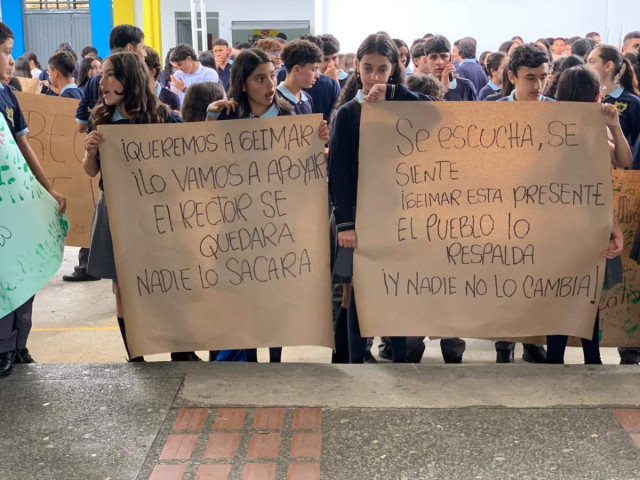 ¡QUEREMOS A GEIMAR!
¡LO VAMOS A APOYAR
EL RECTOR SE
QUEDARA
NADIE LO SACARA
Se escucha, SE
SIENTE
¡GEIMAR ESTA PRESENTE
EL PUEBLO lO
RESPALDA
¡Y NADIE NO LO CAMBIA!